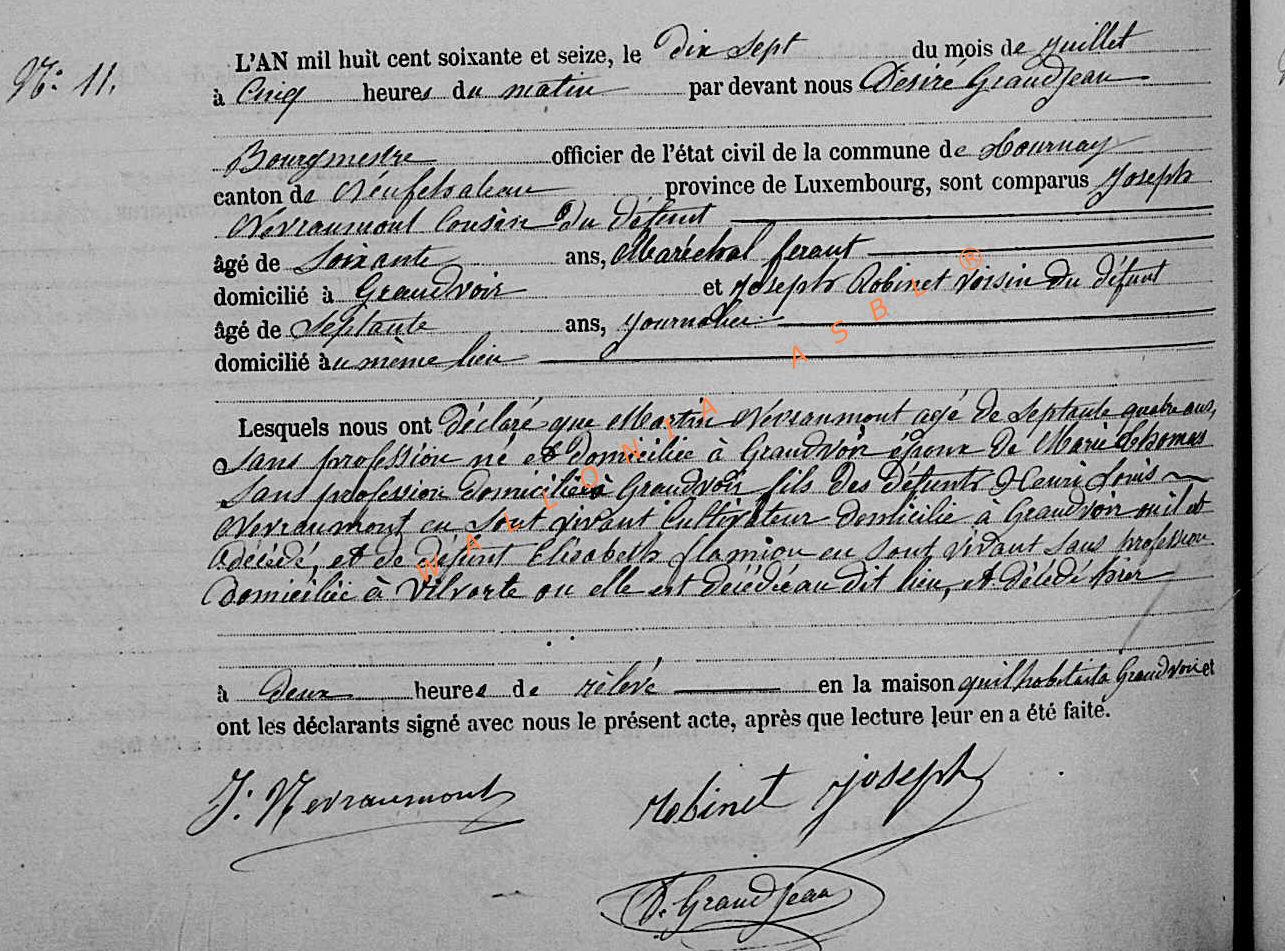 N.º 11.
L'AN mil huit cent soixante et seize, le dix sept du mois de juillet
à Cinq heures du matin par devant nous Désiré Grandjean
Bourgmestre officier de l'état civil de la commune de Tournay
canton de Neufchateau province de Luxembourg, sont comparus Joseph
Nevraumont Cousin du défunt
âgé de Soixante ans, Maréchal ferant
domicilié à Grandvoir et Joseph Robinet voisin du défunt
âgé de Septante ans, journalier
domicilié au même lieu
Lesquels nous ont déclaré que Martin Nevraumont agé de septante quatre ans,
sans profession né et domiciliée à Grandvoir époux de Marie Thomas
sans profession domiciliée à Grandvoir fils des défunts Henri Louis
Nevraumont en sont vivant Cultivateur domicilié à Grandvoir ou il est
décédé, et de défunt Elisabeth flamion en sont vivant sans profession
domiciliée à Vilvorte ou elle est décédée au dit lieu, et décédé hier
à deux heures de rélévé en la maison qu'il habitait à Grandvoir et
ont les déclarants signé avec nous le présent acte, après que lecture leur en a été faite.
J. Nevraumont
Robinet Joseph
D. Grandjean
WALLONIA ASBL ®